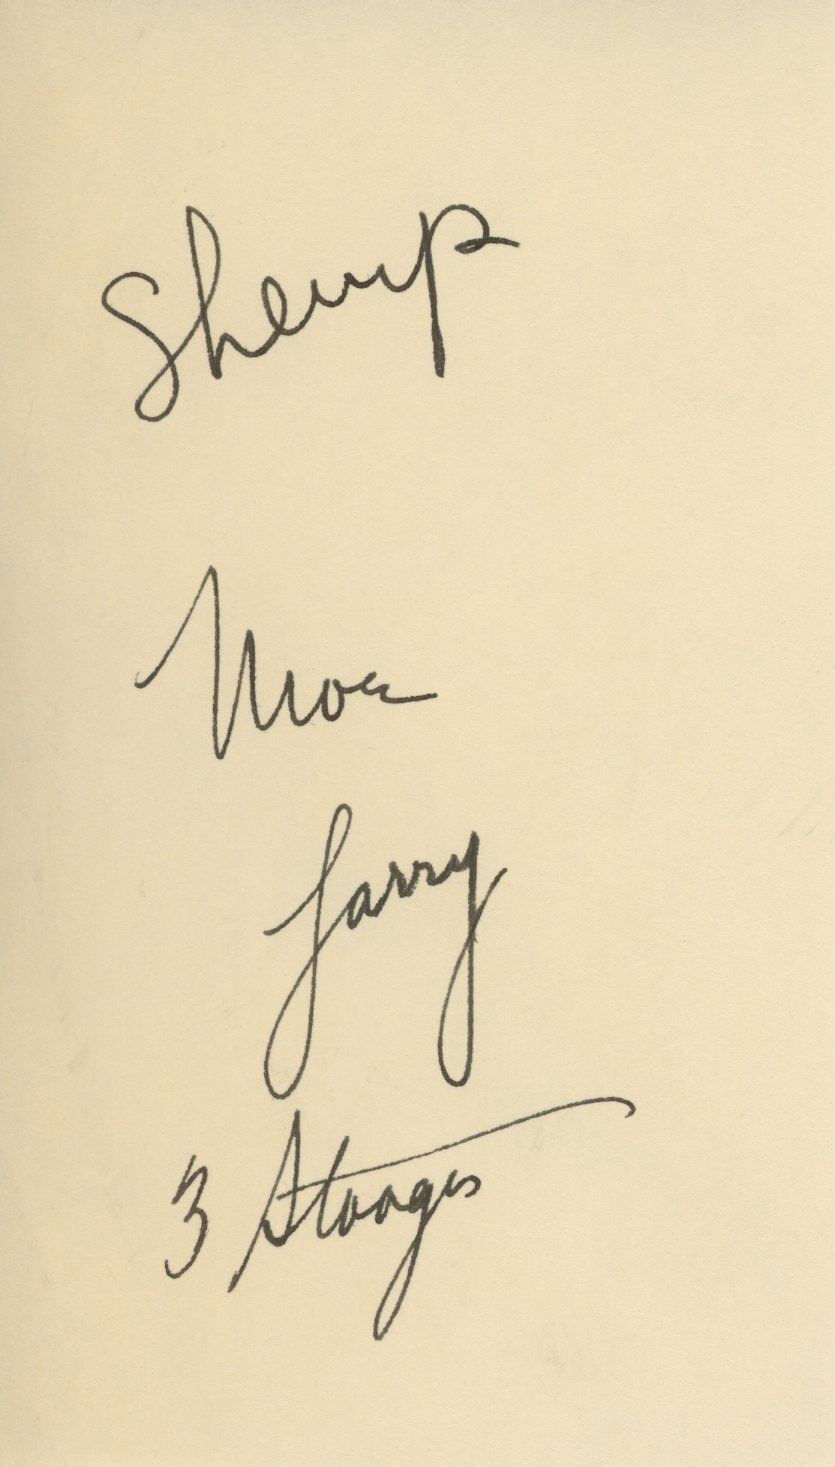 Shemp
Moe
Larry
3 Stooges